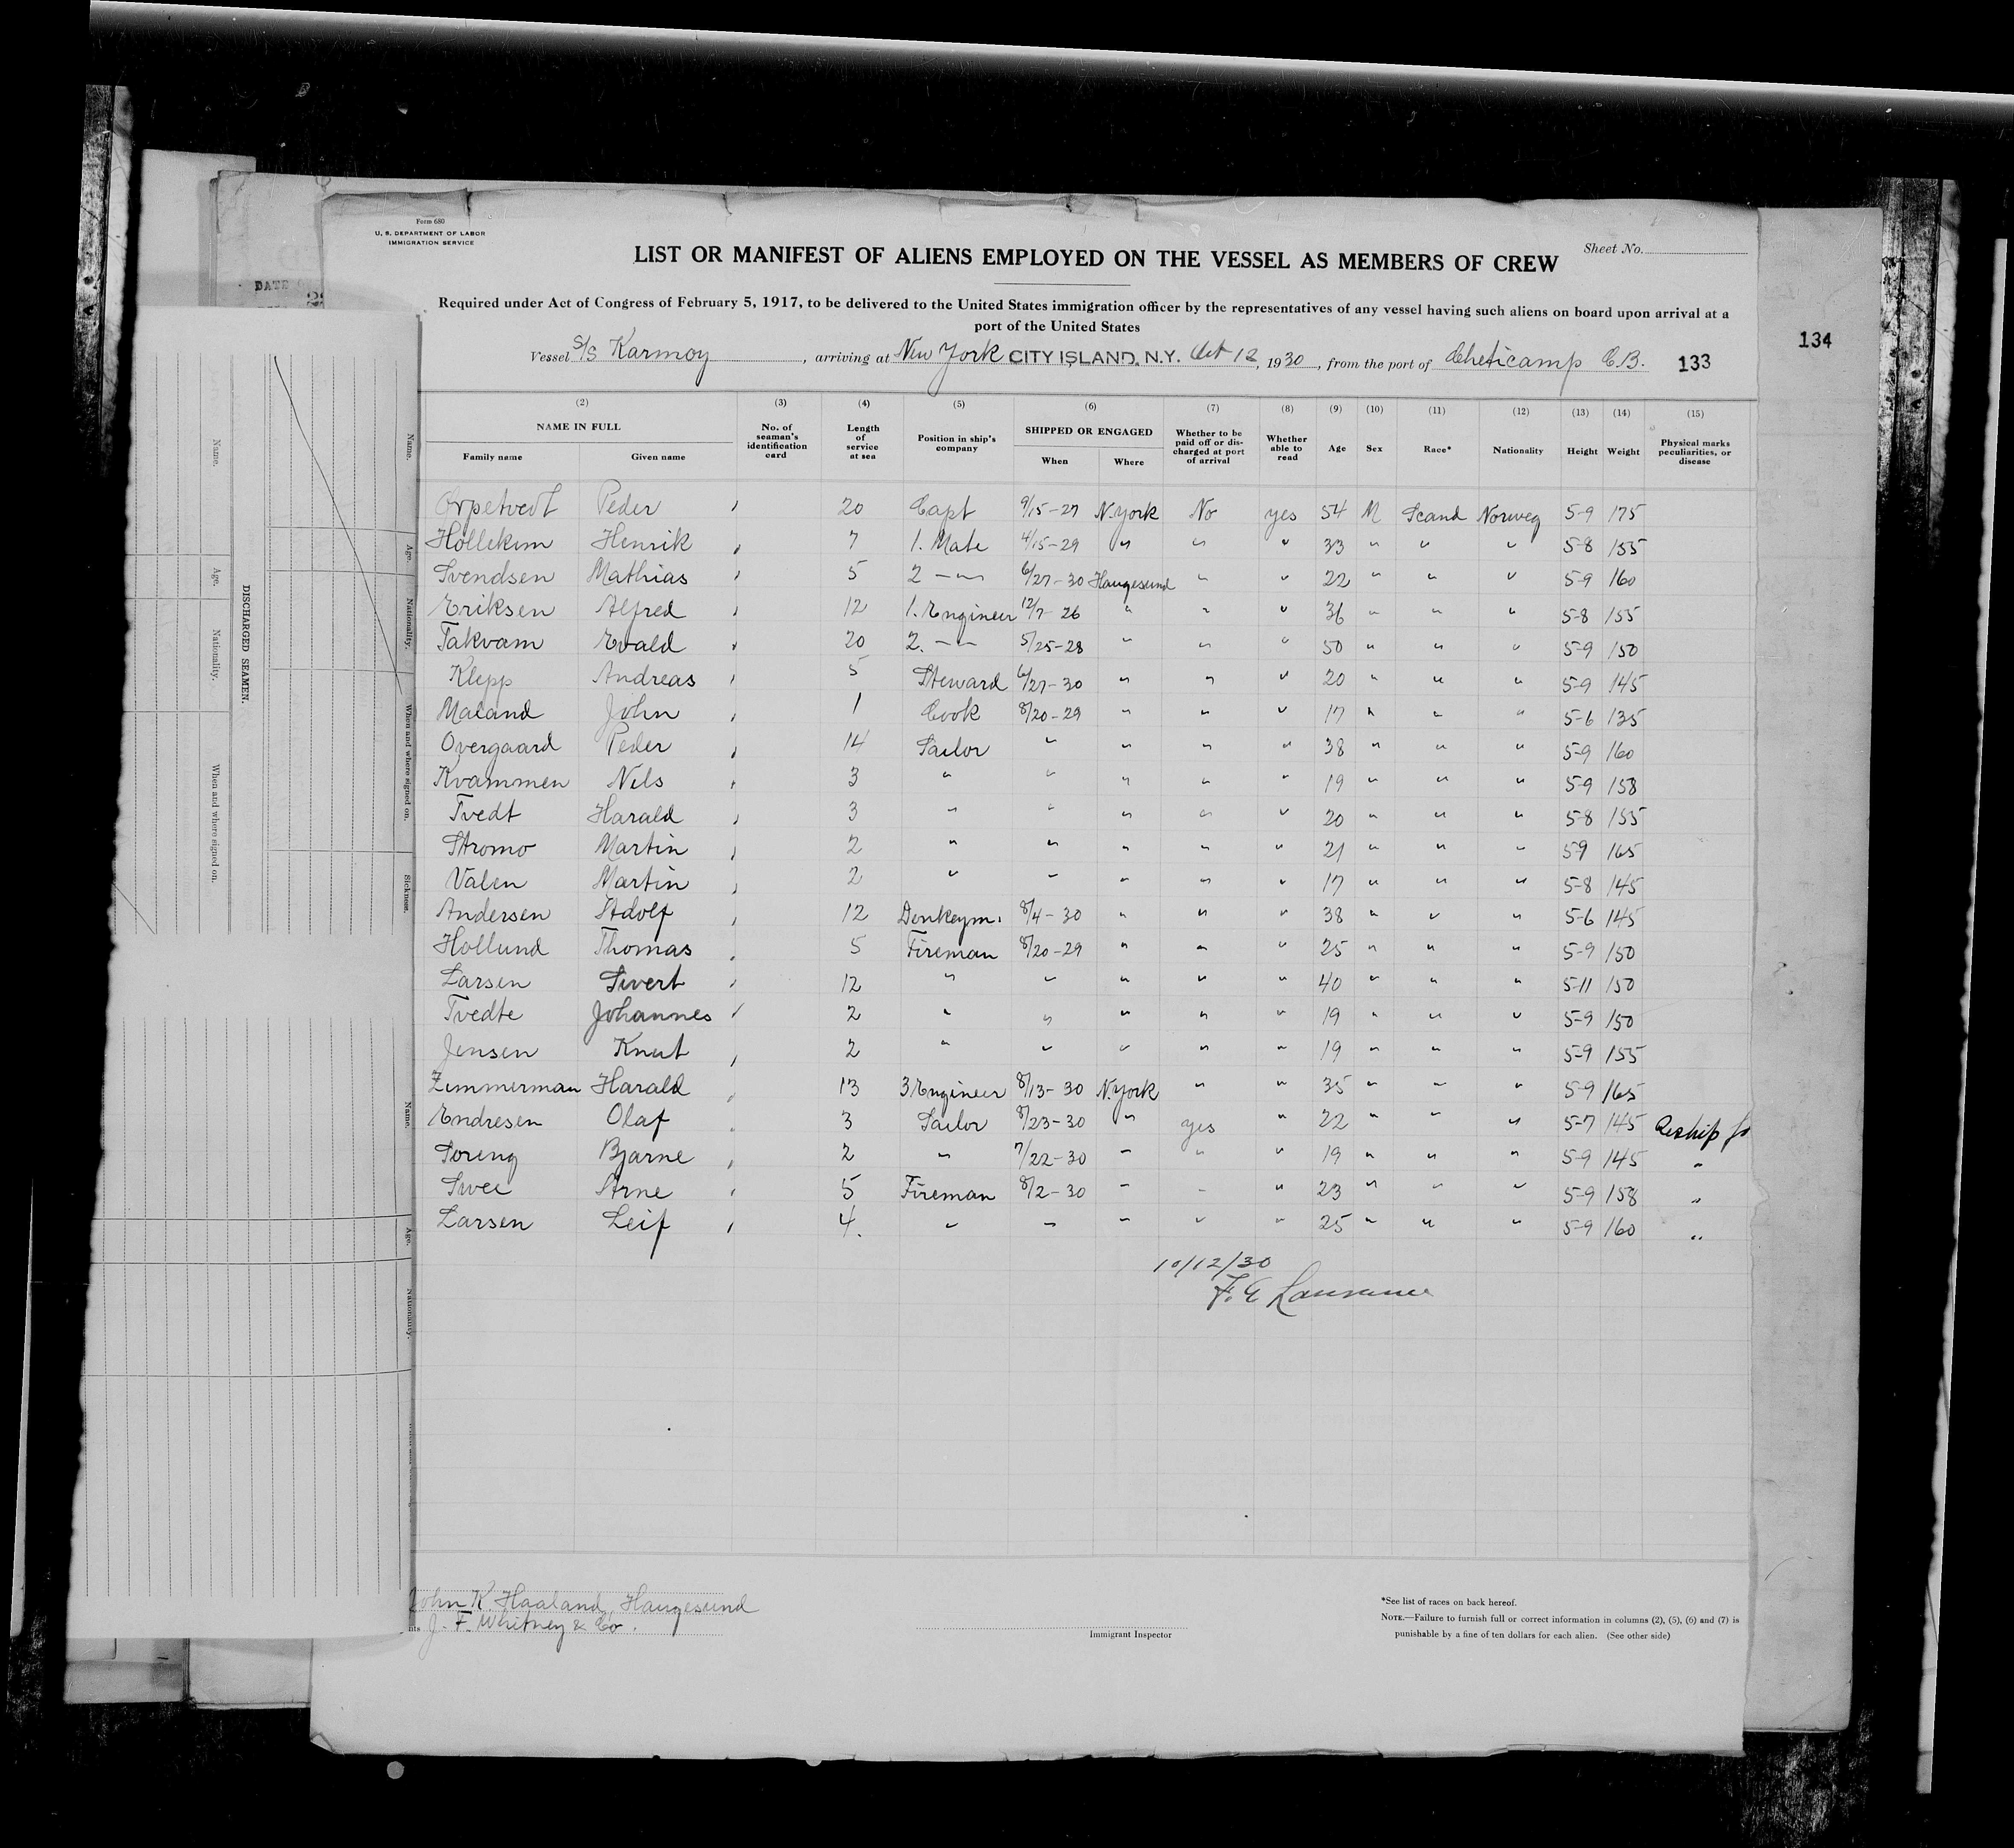 Form 680
U. S. DEPARTMENT OF LABOR
IMMIGRATION SERVICE
Sheet No.
LIST OR MANIFEST OF ALIENS EMPLOYED ON THE VESSEL AS MEMBERS OF CREW
Required under Act of Congress of February 5, 1917, to be delivered to the United States immigration officer by the representatives of any vessel having such aliens on board upon arrival at a
port of the United States
Vessel S/S Karmoy, arriving at New York CITY ISLAND, N.Y. Oct 12, 1930, from the port of Cheticamp C.B. 133
134
(2) (3) (4) (5) (6) (7) (8) (9) (10) (11) (12) (13) (14) (15)
NAME IN FULL No. of seaman's identification card Length of service at sea Position in ship's company SHIPPED OR ENGAGED Whether to be paid off or discharged at port of arrival Whether able to read Age Sex Race* Nationality Height Weight Physical marks peculiarities, or disease
Family name Given name When Where
Orpetvedt Peder 20 Capt 9/15-27 N.York No yes 54 M Scand Norweg 5-9 175
Hollekim Henrik 7 1. Mate 4/15-29 " " " 33 " " " 5-8 155
Svendsen Mathias 5 2 —"— 6/27-30 Haugesund " " 22 " " " 5-9 160
Eriksen Alfred 12 1. Engineer 12/7-26 " " " 36 " " " 5-8 155
Takvam Evald 20 2. —"— 5/25-28 " " " 50 " " " 5-9 150
Klepp Andreas 5 Steward 6/27-30 " " " 20 " " " 5-9 145
Maland John 1 Cook 8/20-29 " " " 17 " " " 5-6 135
Overgaard Peder 14 Sailor " " " " 38 " " " 5-9 160
Kvammen Nils 3 " " " " " 19 " " " 5-9 158
Tvedt Harald 3 " " " " " 20 " " " 5-8 155
Stromo Martin 2 " " " " " 21 " " " 5-9 165
Valen Martin 2 " " " " " 17 " " " 5-8 145
Andersen Adolf 12 Donkeym. 8/4-30 " " " 38 " " " 5-6 145
Hollund Thomas 5 Fireman 8/20-29 " " " 25 " " " 5-9 150
Larsen Sivert 12 " " " " " 40 " " " 5-11 150
Tvedte Johannes 2 " " " " " 19 " " " 5-9 150
Jensen Knut 2 " " " " " 19 " " " 5-9 155
Zimmerman Harald 13 3 Engineer 8/13-30 N.York " " 35 " " " 5-9 165
Endresen Olaf 3 Sailor 8/23-30 " yes " 22 " " " 5-7 145 Reship
Soreng Bjarne 2 " 7/22-30 " " " 19 " " " 5-9 145 "
Svee Arne 5 Fireman 8/2-30 " " " 23 " " " 5-9 158 "
Larsen Leif 4. " " " " " 25 " " " 5-9 160 "
10/12/30
F. E. Lawrence
John K. Haaland, Haugesund
J. F. Whitney & Co.
Immigrant Inspector
*See list of races on back hereof.
NOTE.—Failure to furnish full or correct information in columns (2), (5), (6) and (7) is
punishable by a fine of ten dollars for each alien. (See other side)
DISCHARGED SEAMEN.
Name.
Age.
Nationality.
When and where signed on.
Name.
Age.
Nationality.
When and where signed on.
Sickness.
Name.
Age.
Nationality.